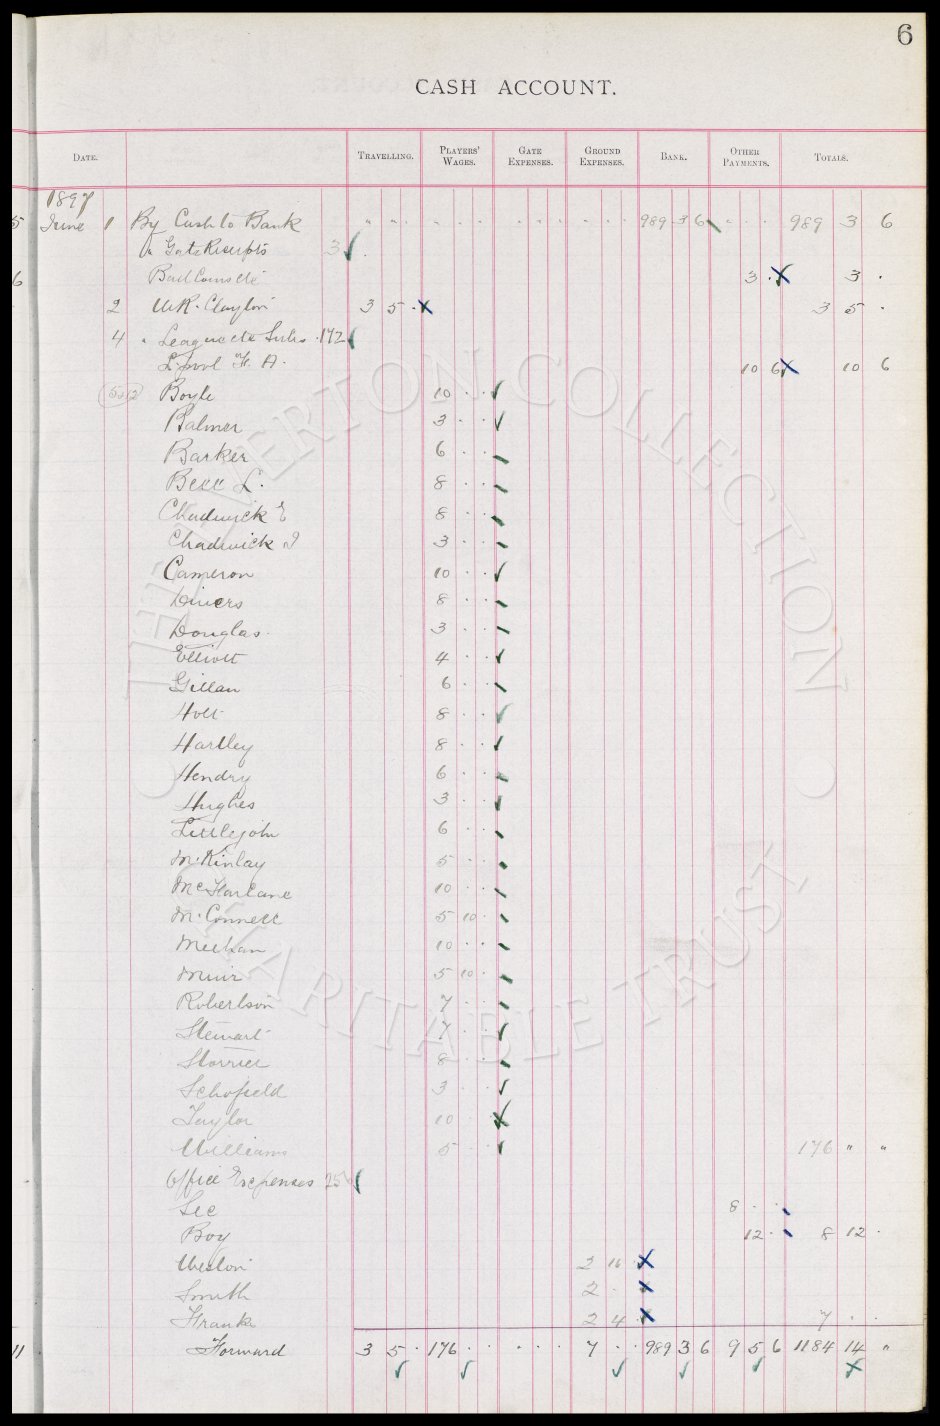 6
CASH ACCOUNT.
DATE. TRAVELLING. PLAYERS' WAGES. GATE EXPENSES. GROUND EXPENSES. BANK. OTHER PAYMENTS. TOTALS.
1897
June 1 By Cash to Bank 989 3 6 989 3 6
" Gate Receipts 3
3 . 3 .
2 W R. Clayton 3 5 . 3 5 .
4 " League etc Subs 172
L'pool F. A. 10 6 10 6
Boyle 10 . .
Balmer 3 . .
Barker 6 . .
Bell L. 8 . .
Chadwick E 8 . .
Chadwick A 3 . .
Cameron 10 . .
Divers 8 . .
Douglas. 3 . .
Elliott 4 . .
Gillan 6 . .
Holt 8 . .
Hartley 8 . .
Hendry 6 . .
Hughes 3 . .
Littlejohn 6 . .
McKinlay 5 . .
McFarlane 10 . .
McConnell 5 10 .
Meehan 10 . .
Muir 5 10 .
Robertson 7 . .
Stewart 7 . .
Storrier 8 . .
Schofield 3 . .
Taylor 10 . .
Williams 5 . . 176 " "
Office Expenses 25
Sec 8 . .
Boy 12 . 8 12 .
Weston 2 16 .
Smith 2 . .
Franks 2 4 . 7 . .
11 Forward 3 5 . 176 . . . . . 7 . . 989 3 6 9 5 6 1184 14 "
THE EVERTON COLLECTION
CHARITABLE TRUST